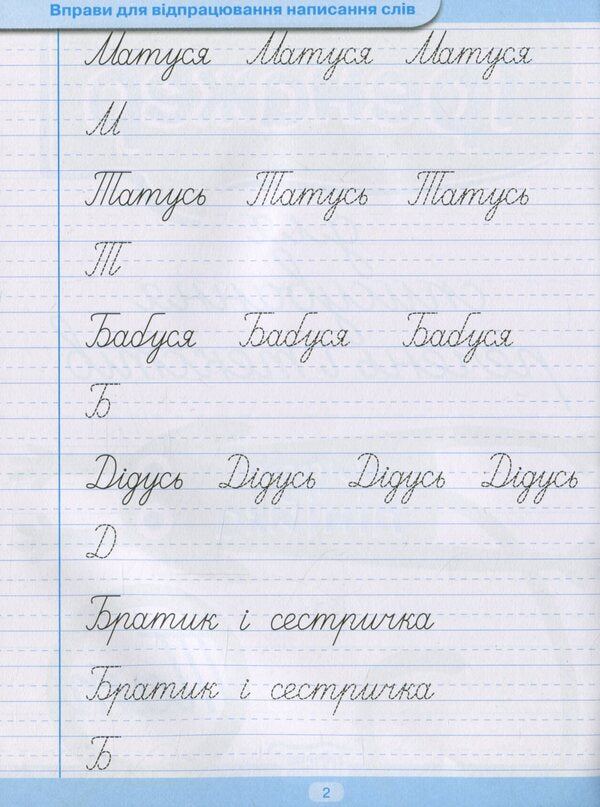 Вправи для відпрацювання написання слів
Матуся Матуся Матуся
М
Татусь Татусь Татусь
Т
Бабуся Бабуся Бабуся
Б
Дідусь Дідусь Дідусь Дідусь
Д
Братик і сестричка
Братик і сестричка
Б
2